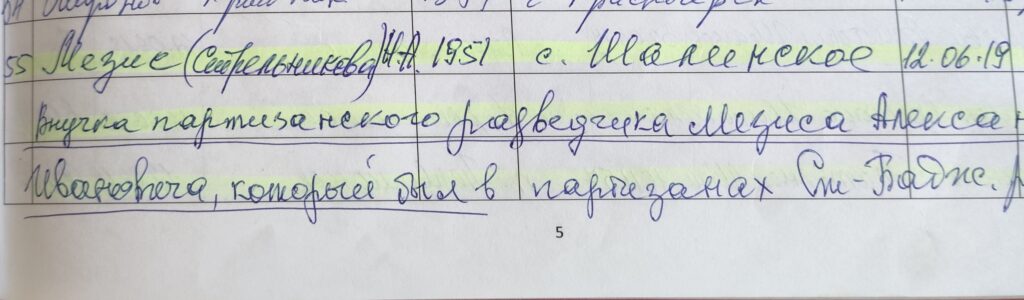 55 Мезис (Стрельникова) Н.А. 1951 с. Шалинское 12.06.19
внучка партизанского разведчика Мезиса Алекса
Ивановича, который был в партизанах Ст-Бадж.
5